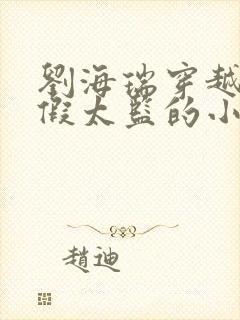 劉海瑞穿越
假太監的小
趙迪